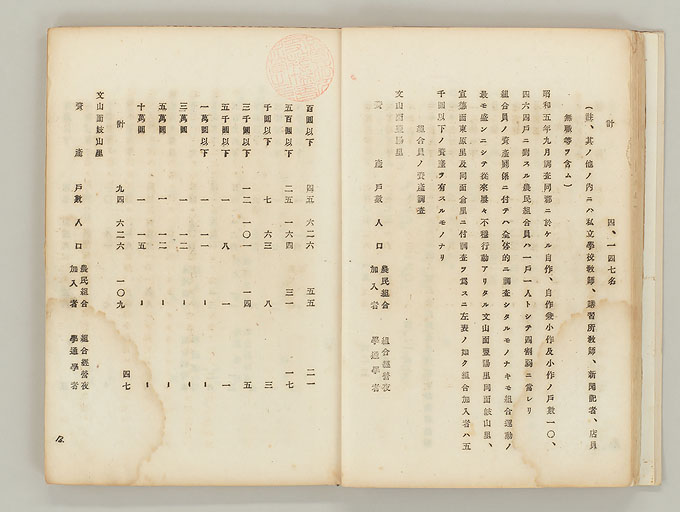 計　四、一四七名
（註、其ノ他ノ内ニハ私立學校教師、講習所教師、新聞記者、店員
無職等ヲ含ム）
昭和五年九月調査同郡ニ於ケル自作、自作兼小作及小作ノ戸數一〇、
四六四戸ニ對スル農民組合員ハ一戸一人トシテ四割弱ニ當レリ
組合員ノ資產關係ニ付テハ全体的ニ調査シタルモノナキモ組合運動ノ
最モ盛ンニシテ從來屢々不穩行動アリタル文山面豐陽里同面歧山里、
宜德面東原里及同面倉里ニ付調査ヲ爲スニ左表ノ如ク組合加入者ハ五
千圓以下ノ資產ヲ有スルモノナリ
組合員ノ資產調査
文山面豐陽里
資產　戸數　人口　農民組合加入者　組合經營夜學通學者
百圓以下　四五　六二六　五五　二一
五百圓以下　二五　一六四　三一　一七
千圓以下　七　六三　八　三
三千圓以下　一二　一〇一　一四　五
五千圓以下　一　八　一　一
一萬圓以下　一　一一
三萬圓　一　一二
五萬圓　一　一二
十萬圓　一　一五
計　九四　六二六　一〇九　四七
文山面歧山里
資產　戸數　人口　農民組合加入者　組合經營夜學通學者